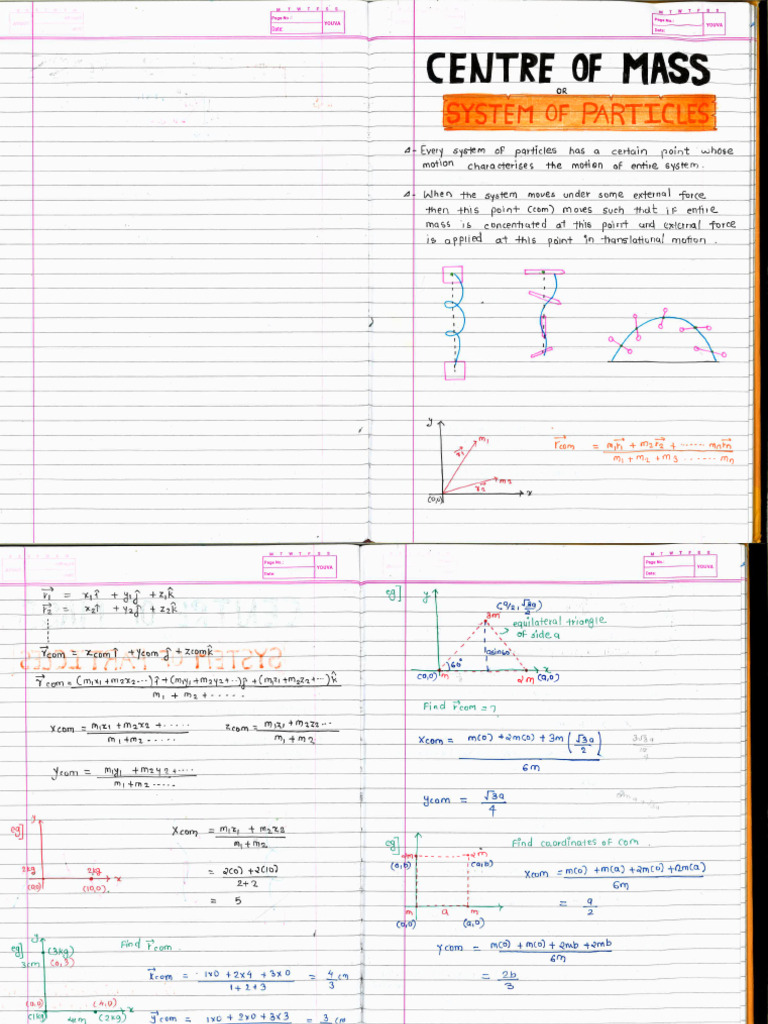 M T W T F S S
Page No.:
Date:
YOUVA
M T W T F S S
Page No.:
Date:
YOUVA
CENTRE OF MASS
OR
SYSTEM OF PARTICLES
Every system of particles has a certain point whose
motion characterises the motion of entire system.
When the system moves under some external force
then this point (com) moves such that if entire
mass is concentrated at this point and external force
is applied at this point in translational motion.
y
m₁
r₁
m₂
r₂
(0,0)
x
r⃗com = m₁r⃗₁ + m₂r⃗₂ + ...... mₙr⃗ₙ
m₁ + m₂ + m₃ ....... mₙ
M T W T F S S
Page No.:
Date:
YOUVA
r⃗₁ = x₁î + y₁ĵ + z₁k̂
r⃗₂ = x₂î + y₂ĵ + z₂k̂
r⃗com = xcomî + ycomĵ + zcomk̂
r⃗com = (m₁x₁+m₂x₂...)î + (m₁y₁+m₂y₂+..)ĵ + (m₁z₁+m₂z₂+..)k̂
m₁ + m₂ + ......
xcom = m₁x₁ + m₂x₂ + .....
m₁+m₂......
zcom = m₁z₁+m₂z₂...
m₁+m₂
ycom = m₁y₁ + m₂y₂+....
m₁+m₂...
eg]
y
2kg
2kg
x
(0,0)
(10,0)
xcom = m₁x₁ + m₂x₂
m₁+m₂
= 2(0) + 2(10)
2+2
= 5
eg]
y
(3kg)
3cm
(0,3)
(0,0)
(4,0)
x
(1kg)
4cm
(2kg)
Find r⃗com
x⃗com = 1x0 + 2x4 + 3x0 = 4 cm
1+2+3
3
y⃗com = 1x0 + 2x0 + 3x3 = 3 cm
M T W T F S S
Page No.:
Date:
YOUVA
eg]
y
3m
equilateral triangle
of side a
60°
asin60°
x
(0,0)
m
2m
(a,0)
Find r⃗com = ?
xcom = m(0) + 2m(0) + 3m(√3a/2)
6m
ycom = √3a
4
eg]
Find coordinates of com.
2m
2m
(a,b)
m
a
m
(0,0)
(a,0)
xcom = m(0) + m(a) + 2m(0) + 2m(a)
6m
= a
2
ycom = m(0) + m(0) + 2mb + 2mb
6m
= 2b
3